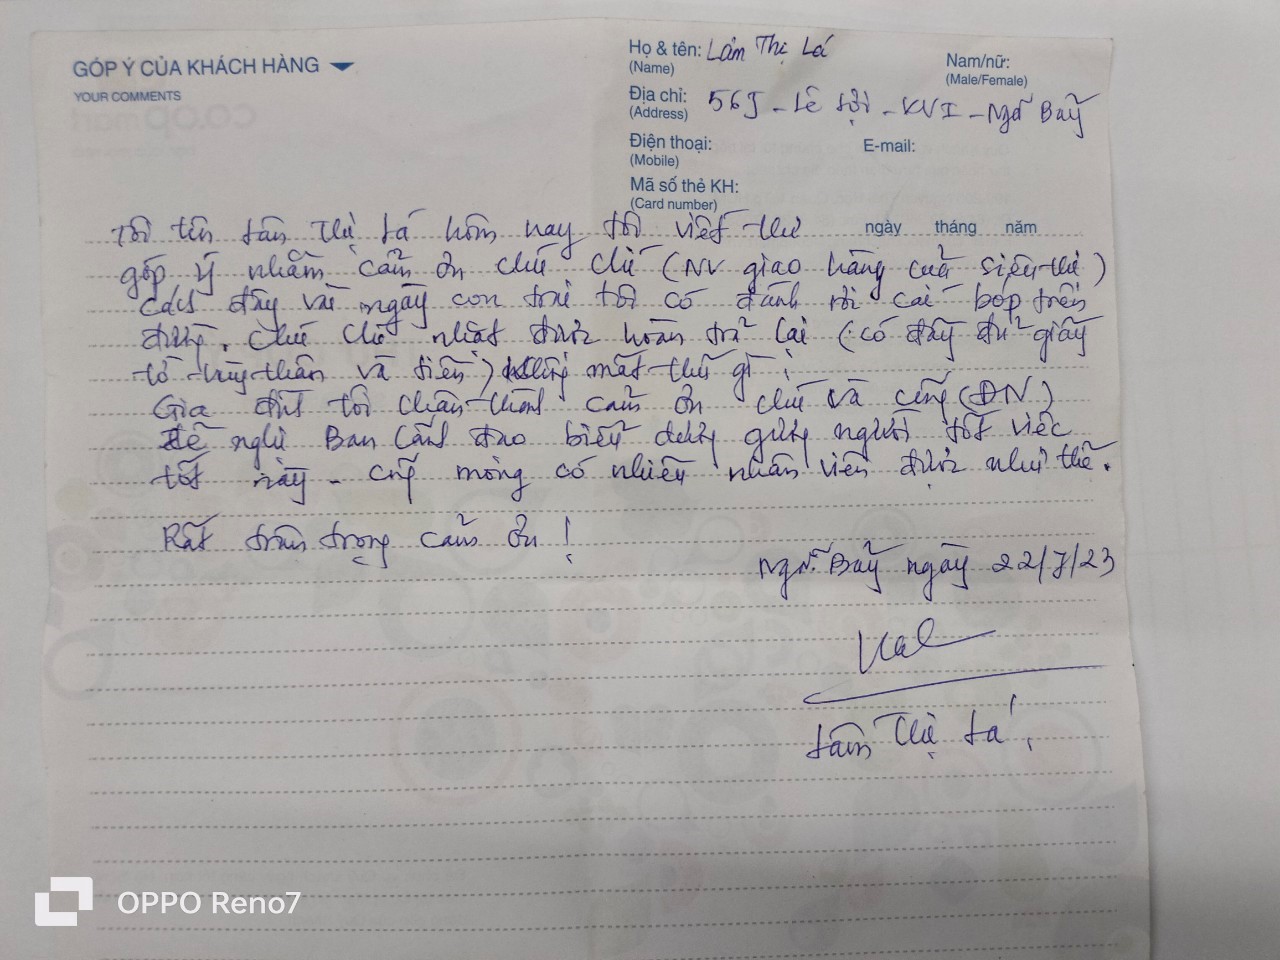 GÓP Ý CỦA KHÁCH HÀNG
YOUR COMMENTS
Họ & tên: Lâm Thị Lá
(Name)
Nam/nữ:
(Male/Female)
Địa chỉ: 567 - Lê Lợi - KVI - Ngã Bảy
(Address)
Điện thoại:
(Mobile)
E-mail:
Mã số thẻ KH:
(Card number)
ngày tháng năm
Tôi tên Lâm Thị Lá hôm nay tôi viết thư
góp ý nhằm cảm ơn chú Chí (NV giao hàng của siêu thị)
Cách đây vài ngày con trai tôi có đánh rơi cái bóp trên
đường. Chú Chí nhặt được hoàn trả lại (có đầy đủ giấy
tờ tùy thân và tiền) không mất thứ gì.
Gia đình tôi chân thành cảm ơn chú và công (DN)
Đề nghị Ban Lãnh đạo biểu dương gương người tốt việc
tốt này - cũng mong có nhiều nhân viên được như thế.
Rất trân trọng cảm ơn!
Ngã Bảy ngày 22/7/23
Lâm Thị Lá
OPPO Reno7